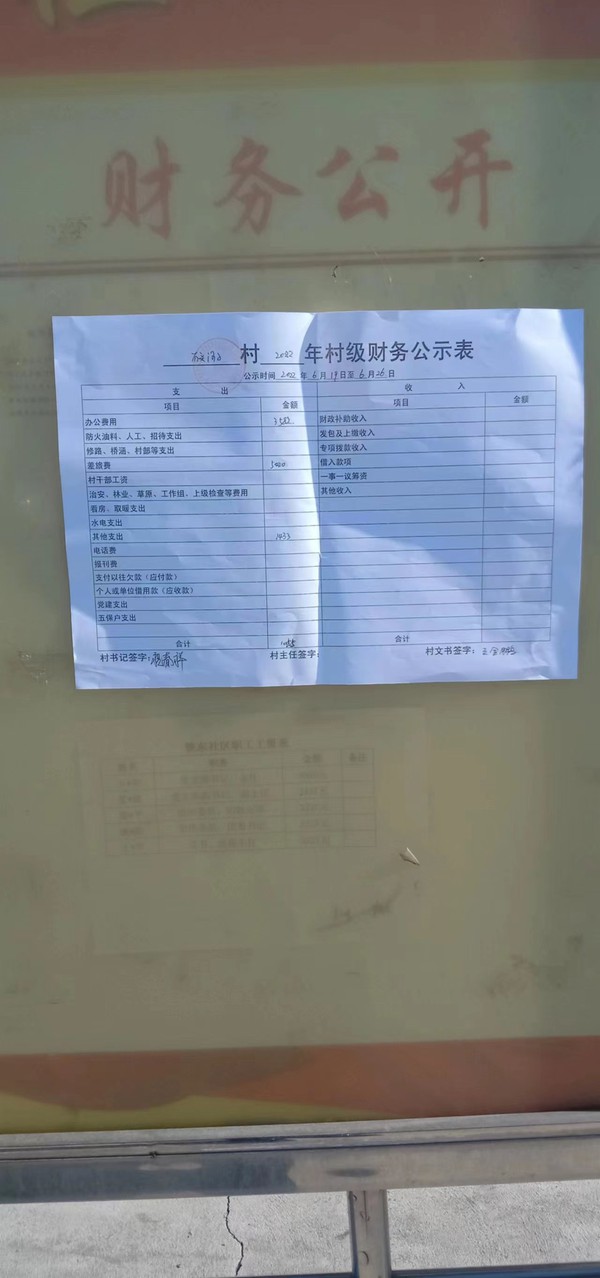 财务公开
村 2022 年村级财务公示表
公示时间 2022 年 6 月 19 日至 6 月 26 日
支 出 收 入
项目 金额 项目 金额
办公费用 3582 财政补助收入
防火油料、人工、招待支出 发包及上缴收入
修路、桥涵、村部等支出 专项拨款收入
差旅费 借入款项
村干部工资 一事一议筹资
治安、林业、草原、工作组、上级检查等费用 其他收入
看房、取暖支出
水电支出
其他支出 1433
电话费
报刊费
支付以往欠款（应付款）
个人或单位借用款（应收款）
党建支出
五保户支出
合计 合计
村书记签字: 村主任签字: 村文书签字: